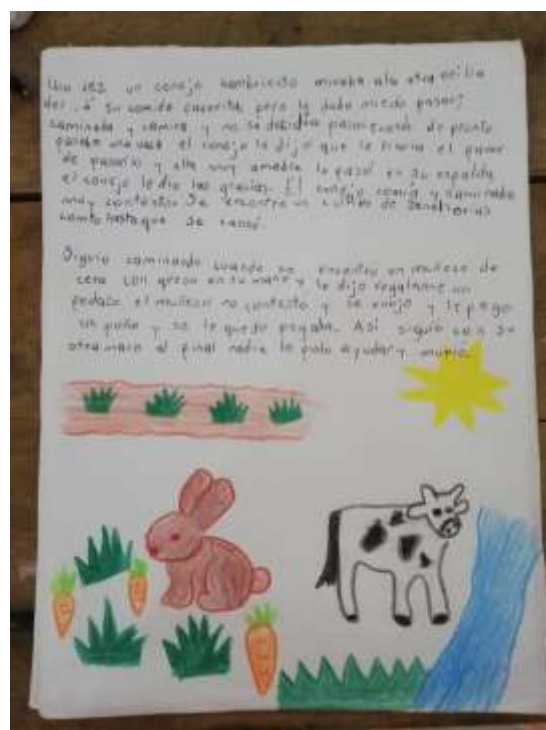 Una vez un conejo hambriento miraba ala otra orilla
del su comida favorita pero le daba miedo pasar;
caminaba y camina y no se decidía pasar de pronto
una vaca el conejo le dijo que le haria el favor
de pasarlo y ella muy amable lo pasó en su espalda
el conejo le dio las gracias. El conejo comía y caminaba
muy contento Se encontro un cultivo de zanahorias
comio hasta que se cansó.
Siguio caminando cuando se encontro un muñeco de
cera con queso en su mano y le dijo regalame un
pedazo el muñeco no contesto y se enojo y le pego
un puño y se le quedo pegada. Asi siguio con su
otra mano al final nadie lo pudo ayudar y murio.